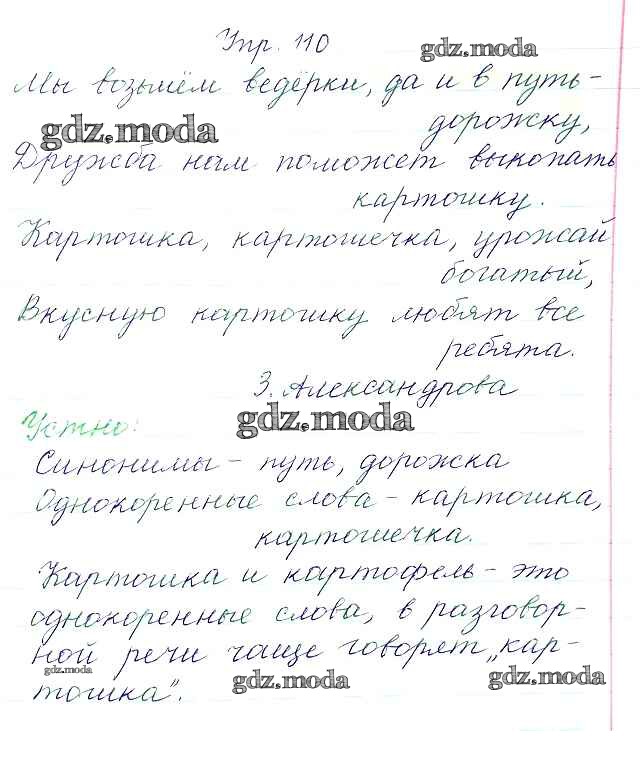 Упр. 110
gdz.moda
Мы возьмём ведёрки, да и в путь-
дорожку,
gdz.moda
Дружба нам поможет выкопать
картошку.
Картошка, картошечка, урожай
богатый,
Вкусную картошку любят все
ребята.
З. Александрова
gdz.moda
Устно:
Синонимы - путь, дорожка
Однокоренные слова - картошка,
картошечка.
Картошка и картофель - это
однокоренные слова, в разговор-
ной речи чаще говорят „кар-
тошка".
gdz.moda
gdz.moda
gdz.moda